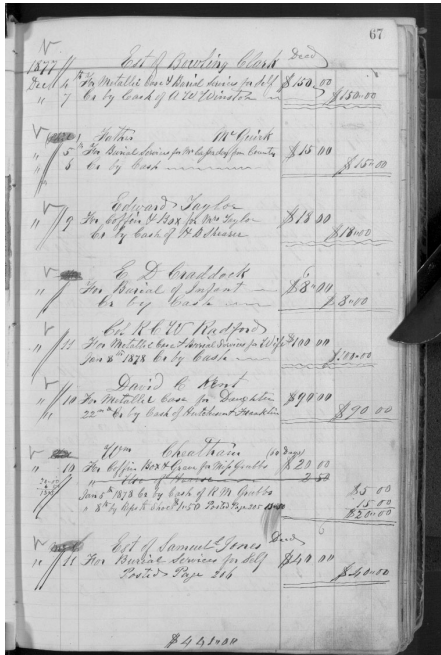 67
1877 Est of Bowling Clark Decd
Dec 4th For Metallic Case & Burial Servises for Self $150.00
" 7 Cr by Cash of A W Winston $150.00
Father McGurk
" 5th For Burial Servises for from County $15 00
" 5 Cr by Cash $15.00
Edward Taylor
" 9 For Coffin & Box for Mrs Taylor $18 00
Cr by Cash of H D Shearer $18.00
E D Craddock
" For Burial of Infant $8.00
Cr by Cash $8.00
Col R C W Radford
" 11 For Metallic Case & Burial Servises for Wife $100 00
Jan 8th 1878 Cr by Cash $100.00
David C Kent
" 10 For Metallic Case for Daughter $90 00
" 22nd Cr by Cash of Franklin $90 00
Wm Cheatham
" 10 For Coffin Box & Grave for Miss Grubbs $20 00
" Hire of Hearse 2 50
Jan 5th 1878 Cr by Cash of R M Grubbs $5 00
" 8th by Posted Page 205 15 00
$20.00
Est of Samuel Jones Decd
" 11 For Burial Services for Self $40 00
Posted Page 206 $40.00
$441.00